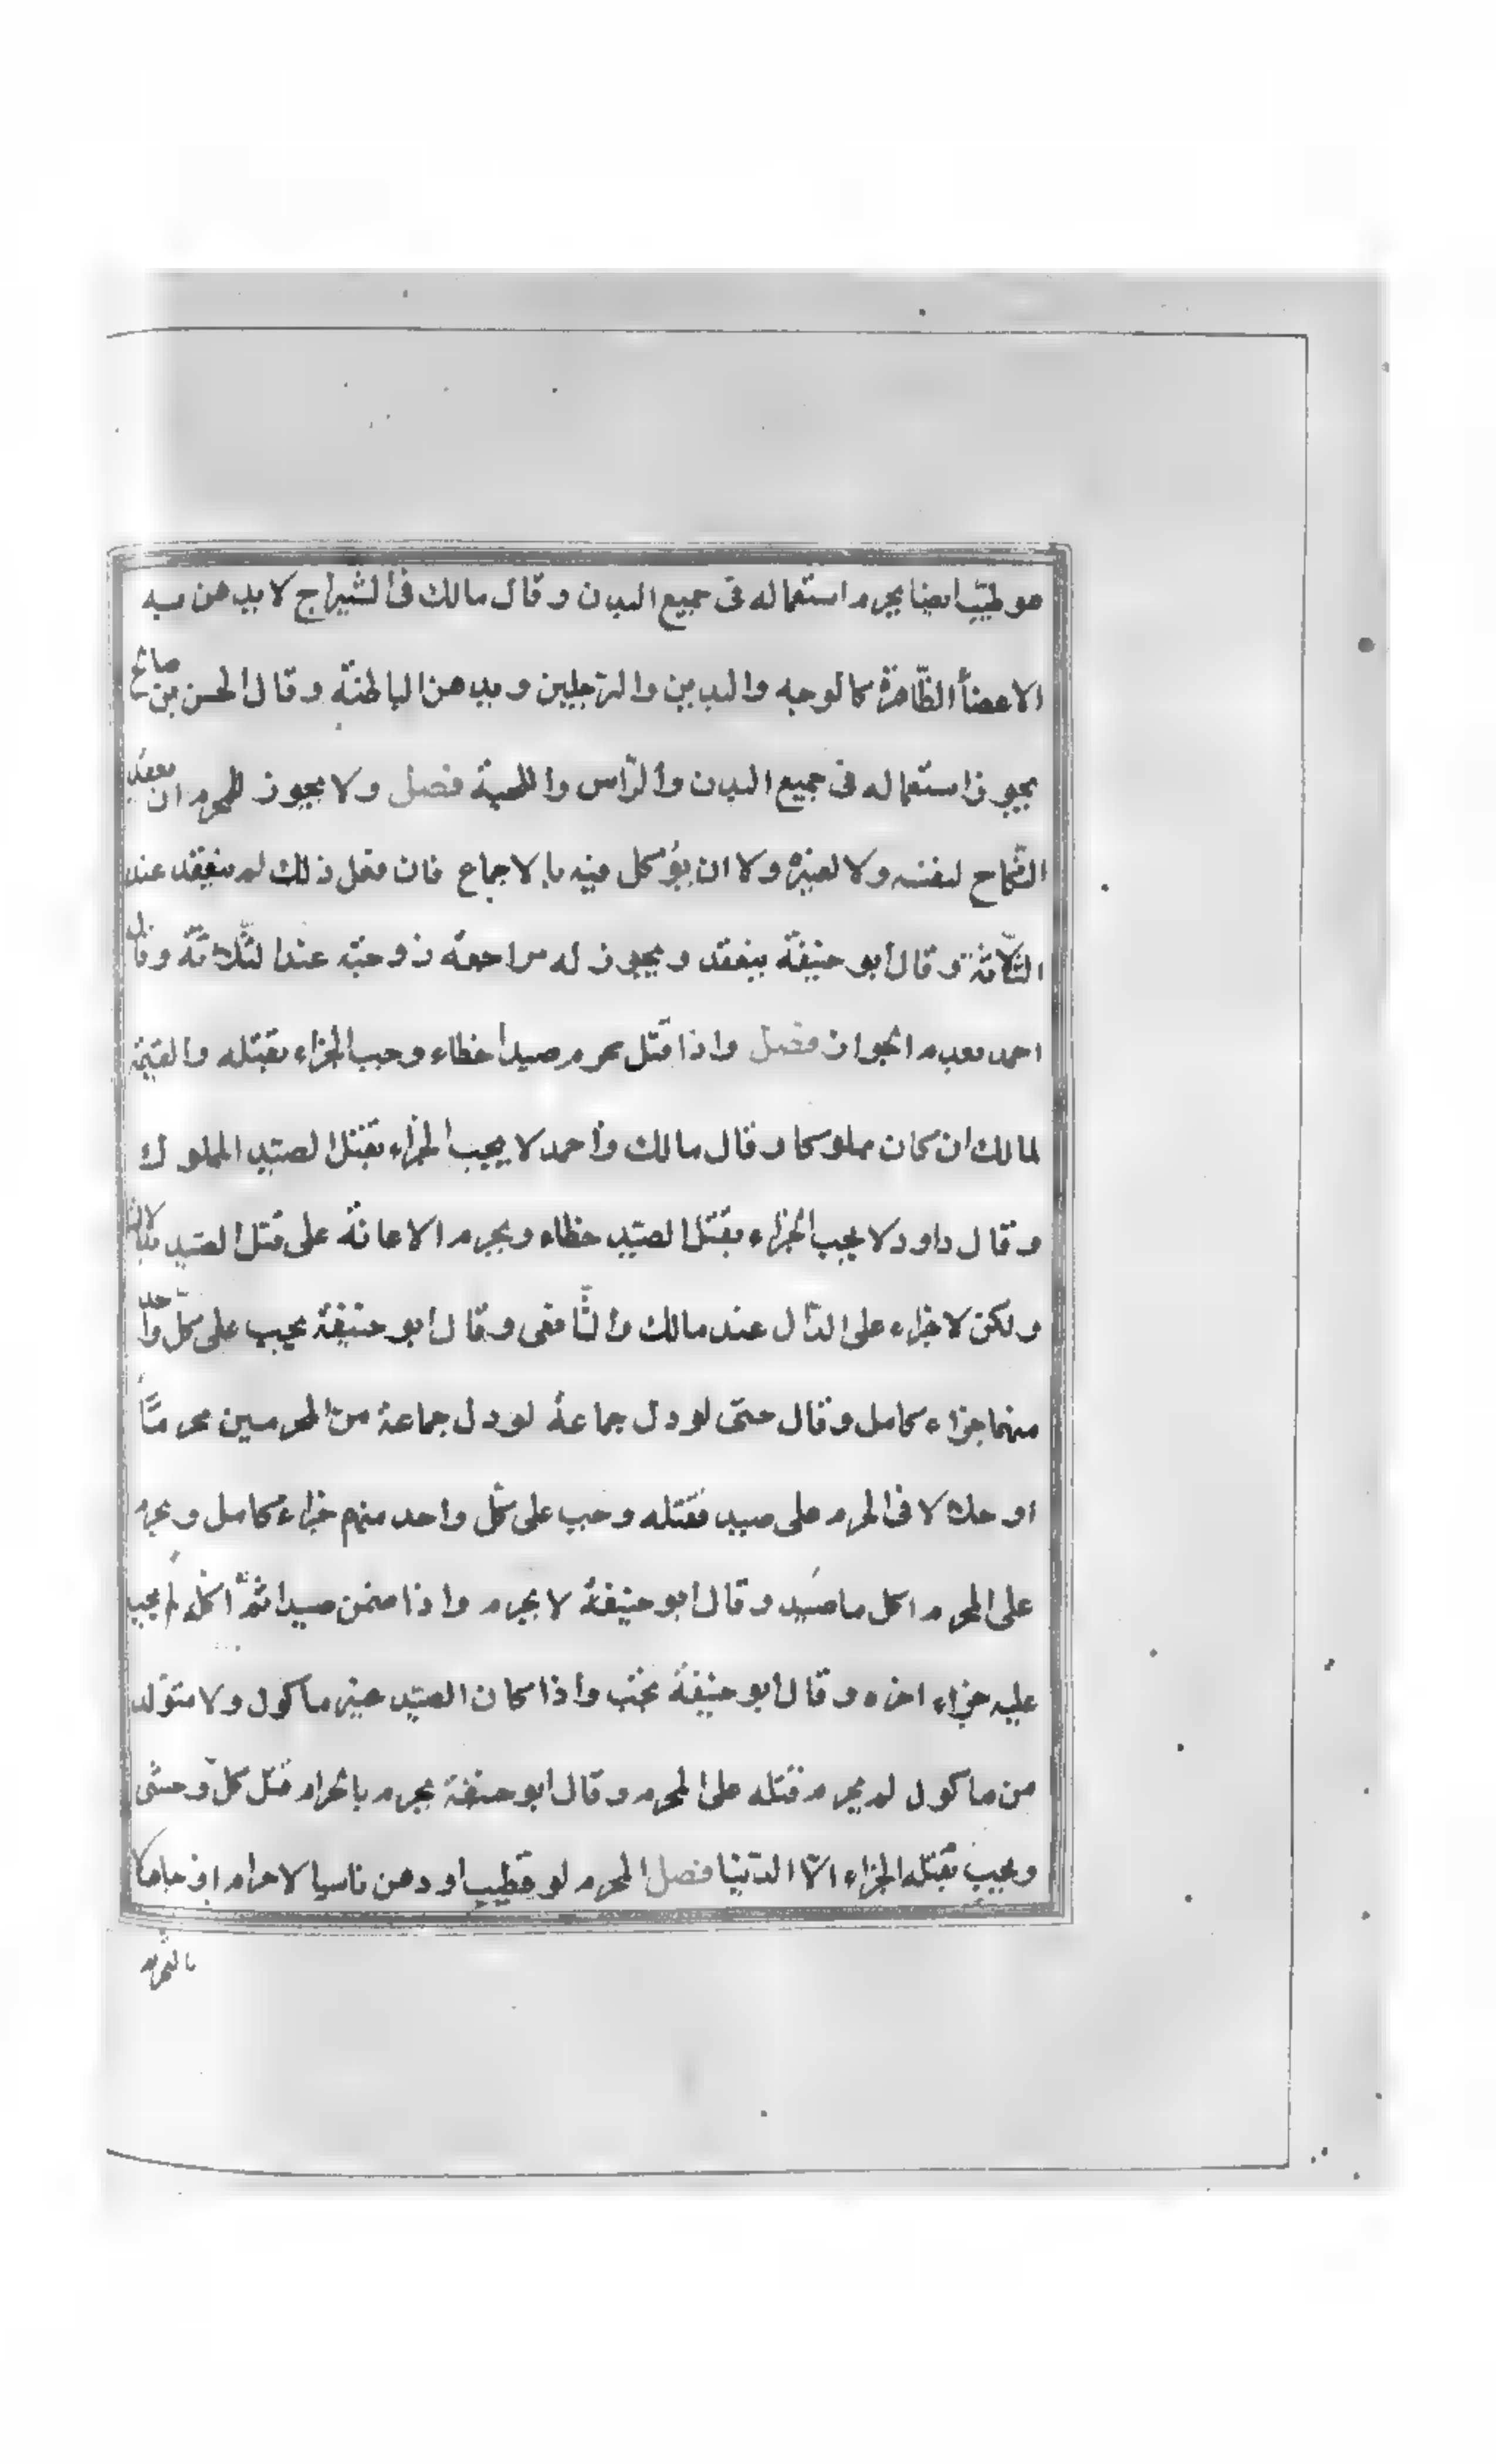 هو طيب ايضا يحرم استعماله فى جميع البدن وقال مالك فى الشيراج لا يدهن به
الاعضأ الظّاهرة كالوجه واليدين والرّجلين ويدهن الباطنة وقال الحسن بن صالح
يجوز استعماله فى جميع البدن والرّاس واللحية فصل ولا يجوز للمحرم ان يعقد
النّكاح لنفسه ولا لغيره ولا ان يؤكل فيه بالاجماع فان فعل ذلك لم ينعقد عند
الثّلاثة وقال ابو حنيفة ينعقد ويجوز له مراجعة زوجته عند الثّلاثة وقال
احمد بعدم الجواز فصل واذا قتل محرم صيدا خطاء وجب الجزاء بقتله والقيمة
لمالك ان كان مملوكا وقال مالك واحمد لا يجب الجزاء بقتل الصّيد المملوك
وقال داود لا يجب الجزاء بقتل الصّيد خطاء ويحرم الاعانة على قتل الصّيد
ولكن لا جزاء على الدّال عند مالك والشّافعى وقال ابو حنيفة يجب على كلّ واحد
منهما جزاء كامل وقال حتّى لو دل جماعة لو دل جماعة من المحرمين محرمّا
او حلالا فى الحرم على صيد فقتله وجب على كل واحد منهم جزاء كامل ويحرم
على المحرم اكل ما صيد وقال ابو حنيفة لا يحرم واذا ضمن صيدا ثمّ اكله لم يجب
عليه جزاء اخر وقال ابو حنيفة يجب واذا كان الصّيد غير ماكول ولا متولد
من ماكول لم يحرم قتله على المحرم وقال ابو حنيفة يحرم بالاحرام قتل كلّ وحشى
ويجب بقتله الجزاء الّا الدّب فصل المحرم لو تطيب او دهن ناسيا لاحرام او جاهلا
بالتحريم